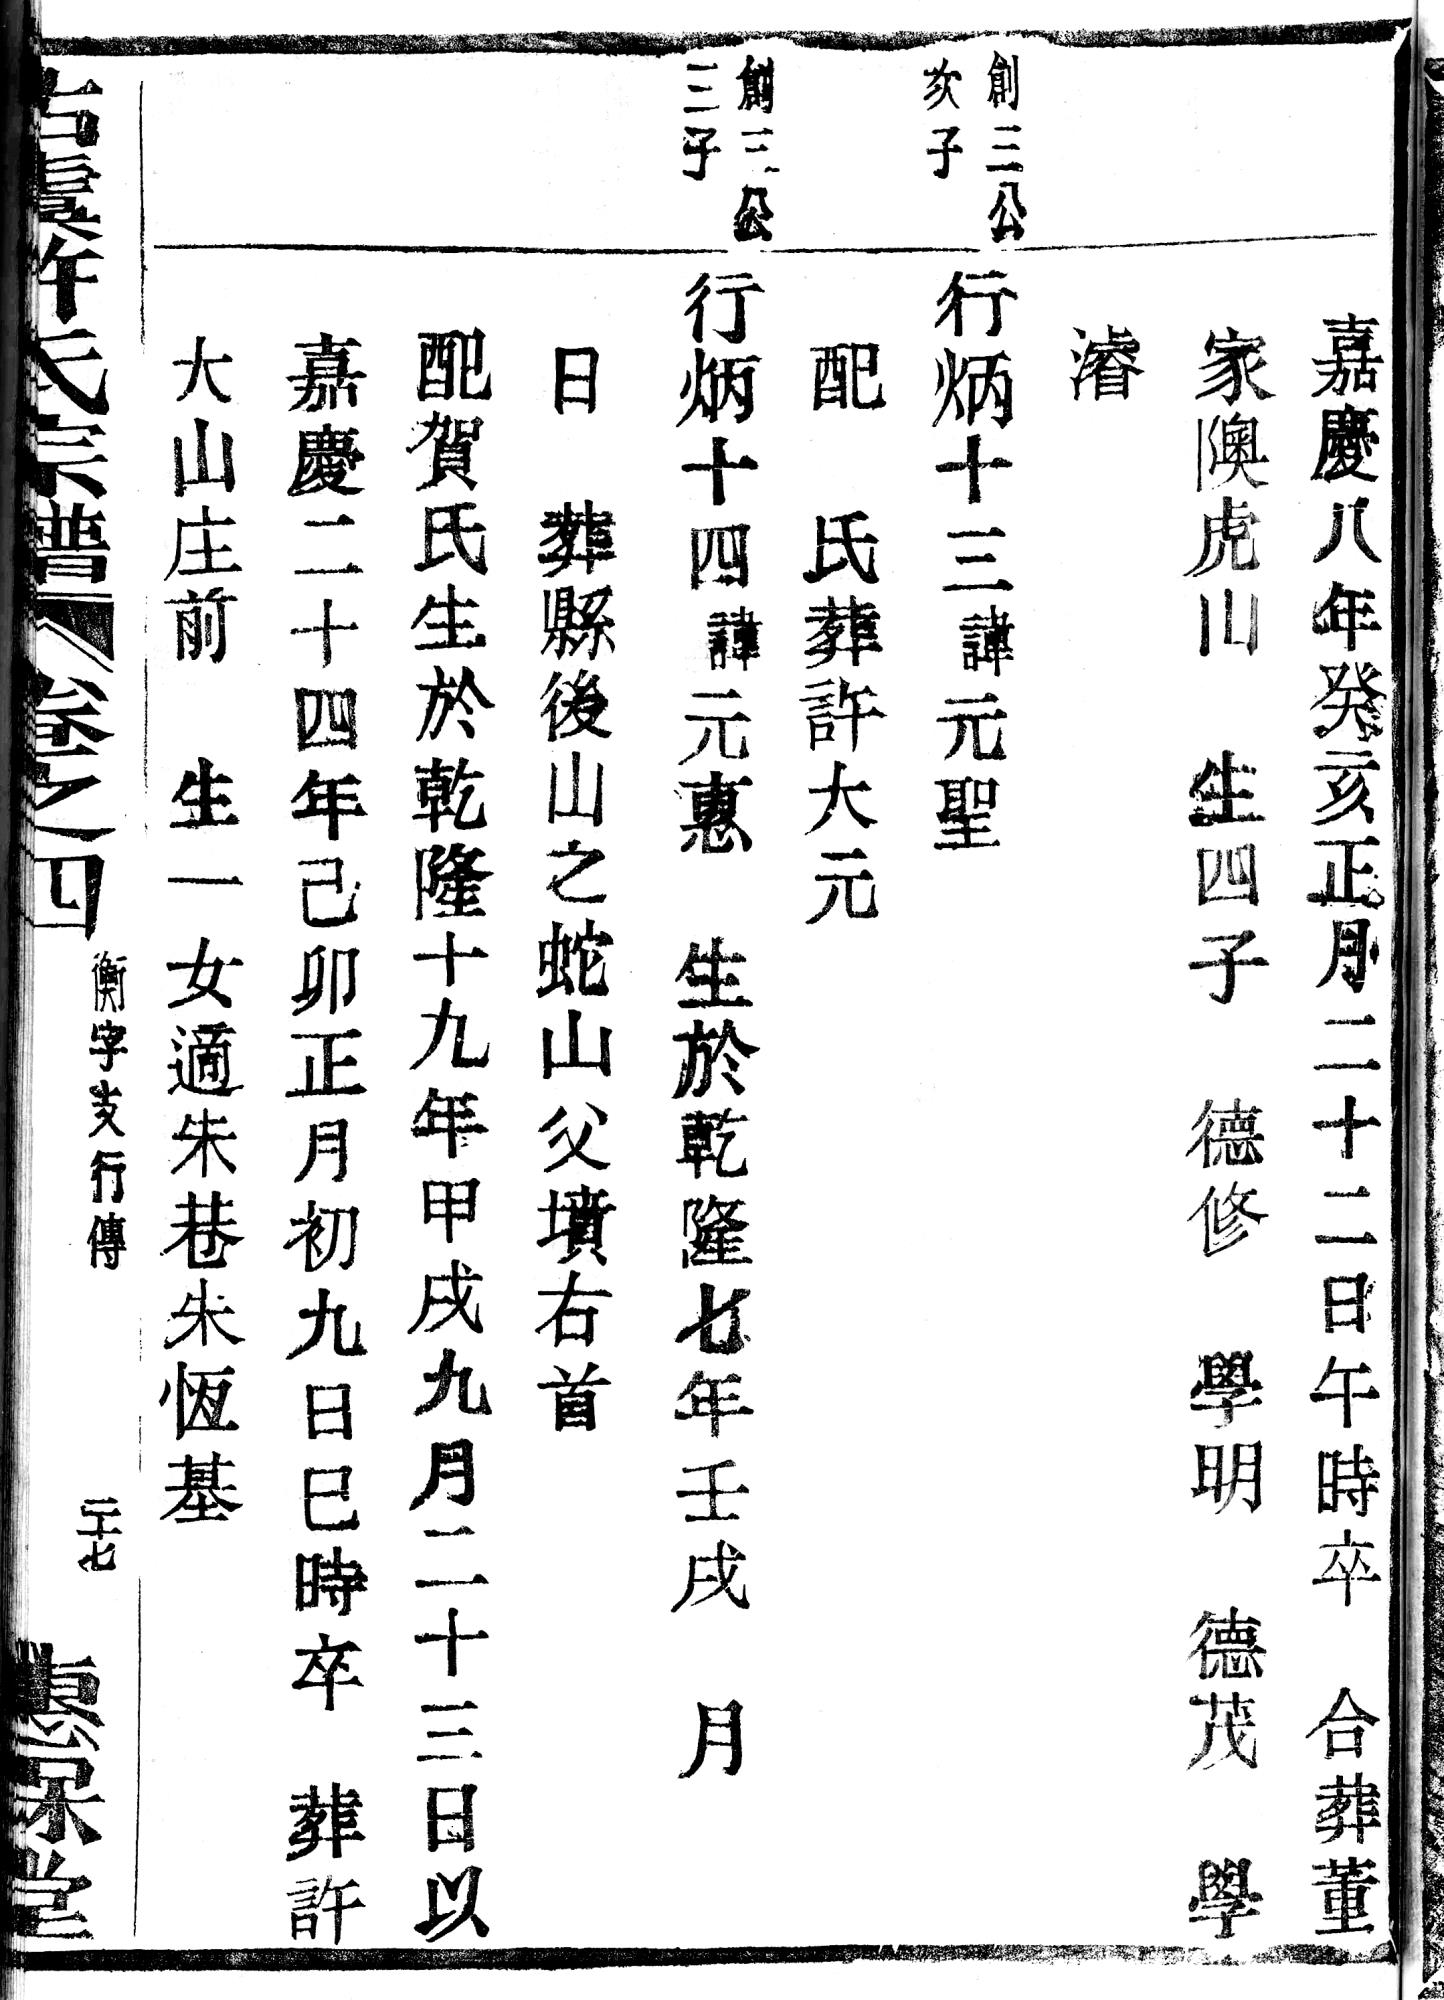 嘉慶八年癸亥正月二十二日午時卒　合葬董
家隩虎山　生四子　德修　學明　德茂　學
濬
創三公
次子
行炳十三諱元聖
配　氏葬許大元
創三公
三子
行炳十四諱元惠　生於乾隆七年壬戌　月
日　葬縣後山之蛇山父墳右首
配賀氏生於乾隆十九年甲戌九月二十三日以
嘉慶二十四年己卯正月初九日巳時卒　葬許
大山庄前　生一女適朱巷朱恆基
古虞許氏宗譜　卷之四　衡字支行傳　二十七　惠保堂